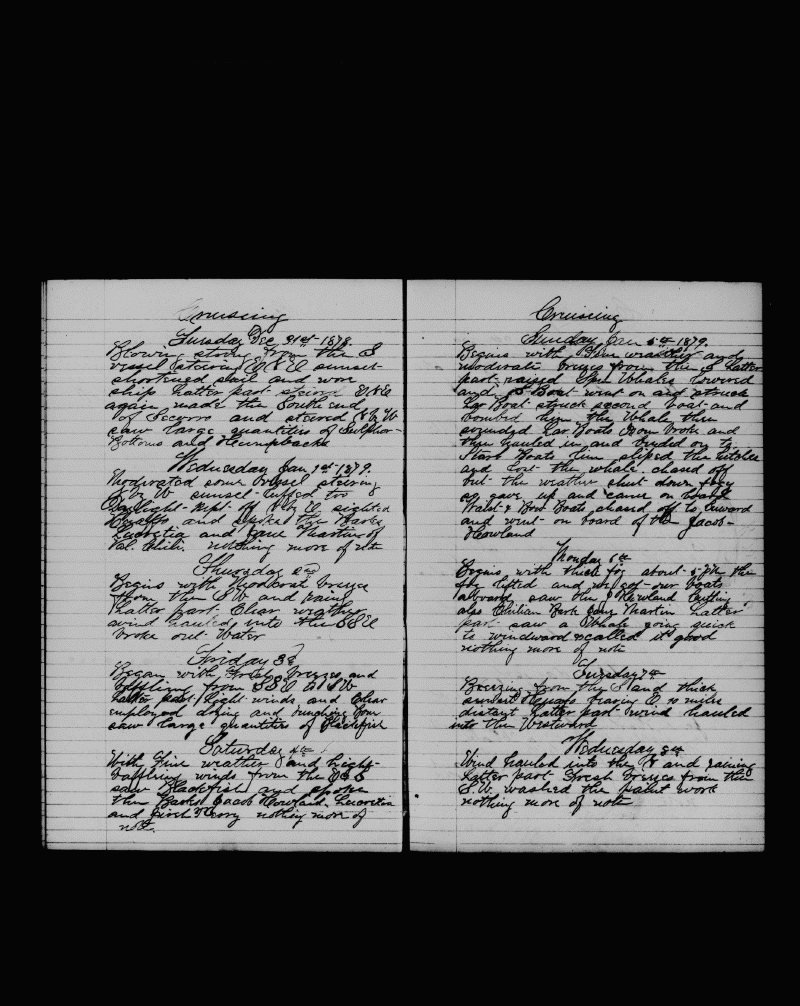 Cruising
Tuesday Dec 31st 1878.
Blowing strong from the S
vessel steering E sunset
shortened sail and wore
ship latter part steered
again made the South end
of and steered S by W
saw large quantities of Sulphor-
Bottoms and Humpbacks
Wednesday Jan 1st 1879.
Moderated some vessel steering
S by W sunset luffed too
Daylight kept off sighted
and spoke the Barks
Lucretia and Jane Martin of
Val. Chili. nothing more of note
Thursday 2nd
Begins with Moderat breeze
from the SW and rain
Latter part Clear weather
wind hauled into the SSE
broke out Water
Friday 3d
Began with breezes and
baffling from SSE to SW
Latter part light winds and Clear
employed drying and Bone
saw large quantities of Blackfish
Saturday 4th
With Fine weather and light
baffling winds from the
saw Blackfish and spoke
then Barks Jacob Howland, Lucretia
and nothing more of
note.
Cruising
Sunday Jan 5th 1879.
Begins with Fine weather and
moderate breezes from the S latter
part raised Spm Whales lowered
and Boat went on and struck
Lar Boat struck second boat and
bombed him the Whale then
sounded Lar Boats Iron broke and
then hauled in and bended on to
Starb Boats line sliped the hitches
and lost the whale chased off
but the weather shut down foggy
so gave up and came on board
Waist & Bow Boats chased off to Leeward
and went on board of the Jacob
Howland
Monday 6th
Begins with thick fog about 5 PM the
fog lifted and we got our boats
aboard saw the J Howland Cutting
also Chilian Bark Jany Martin Latter
part saw a Whale going quick
to windward called it good
nothing more of note
Tuesday 7th
Breezing from the S and thick
sunset bearing E 20 miles
distant Latter part wind hauled
into the Westward
Wednesday 8th
Wind hauled into the and raining
Latter part Fresh breezes from the
S.W. washed the paint work
nothing more of note